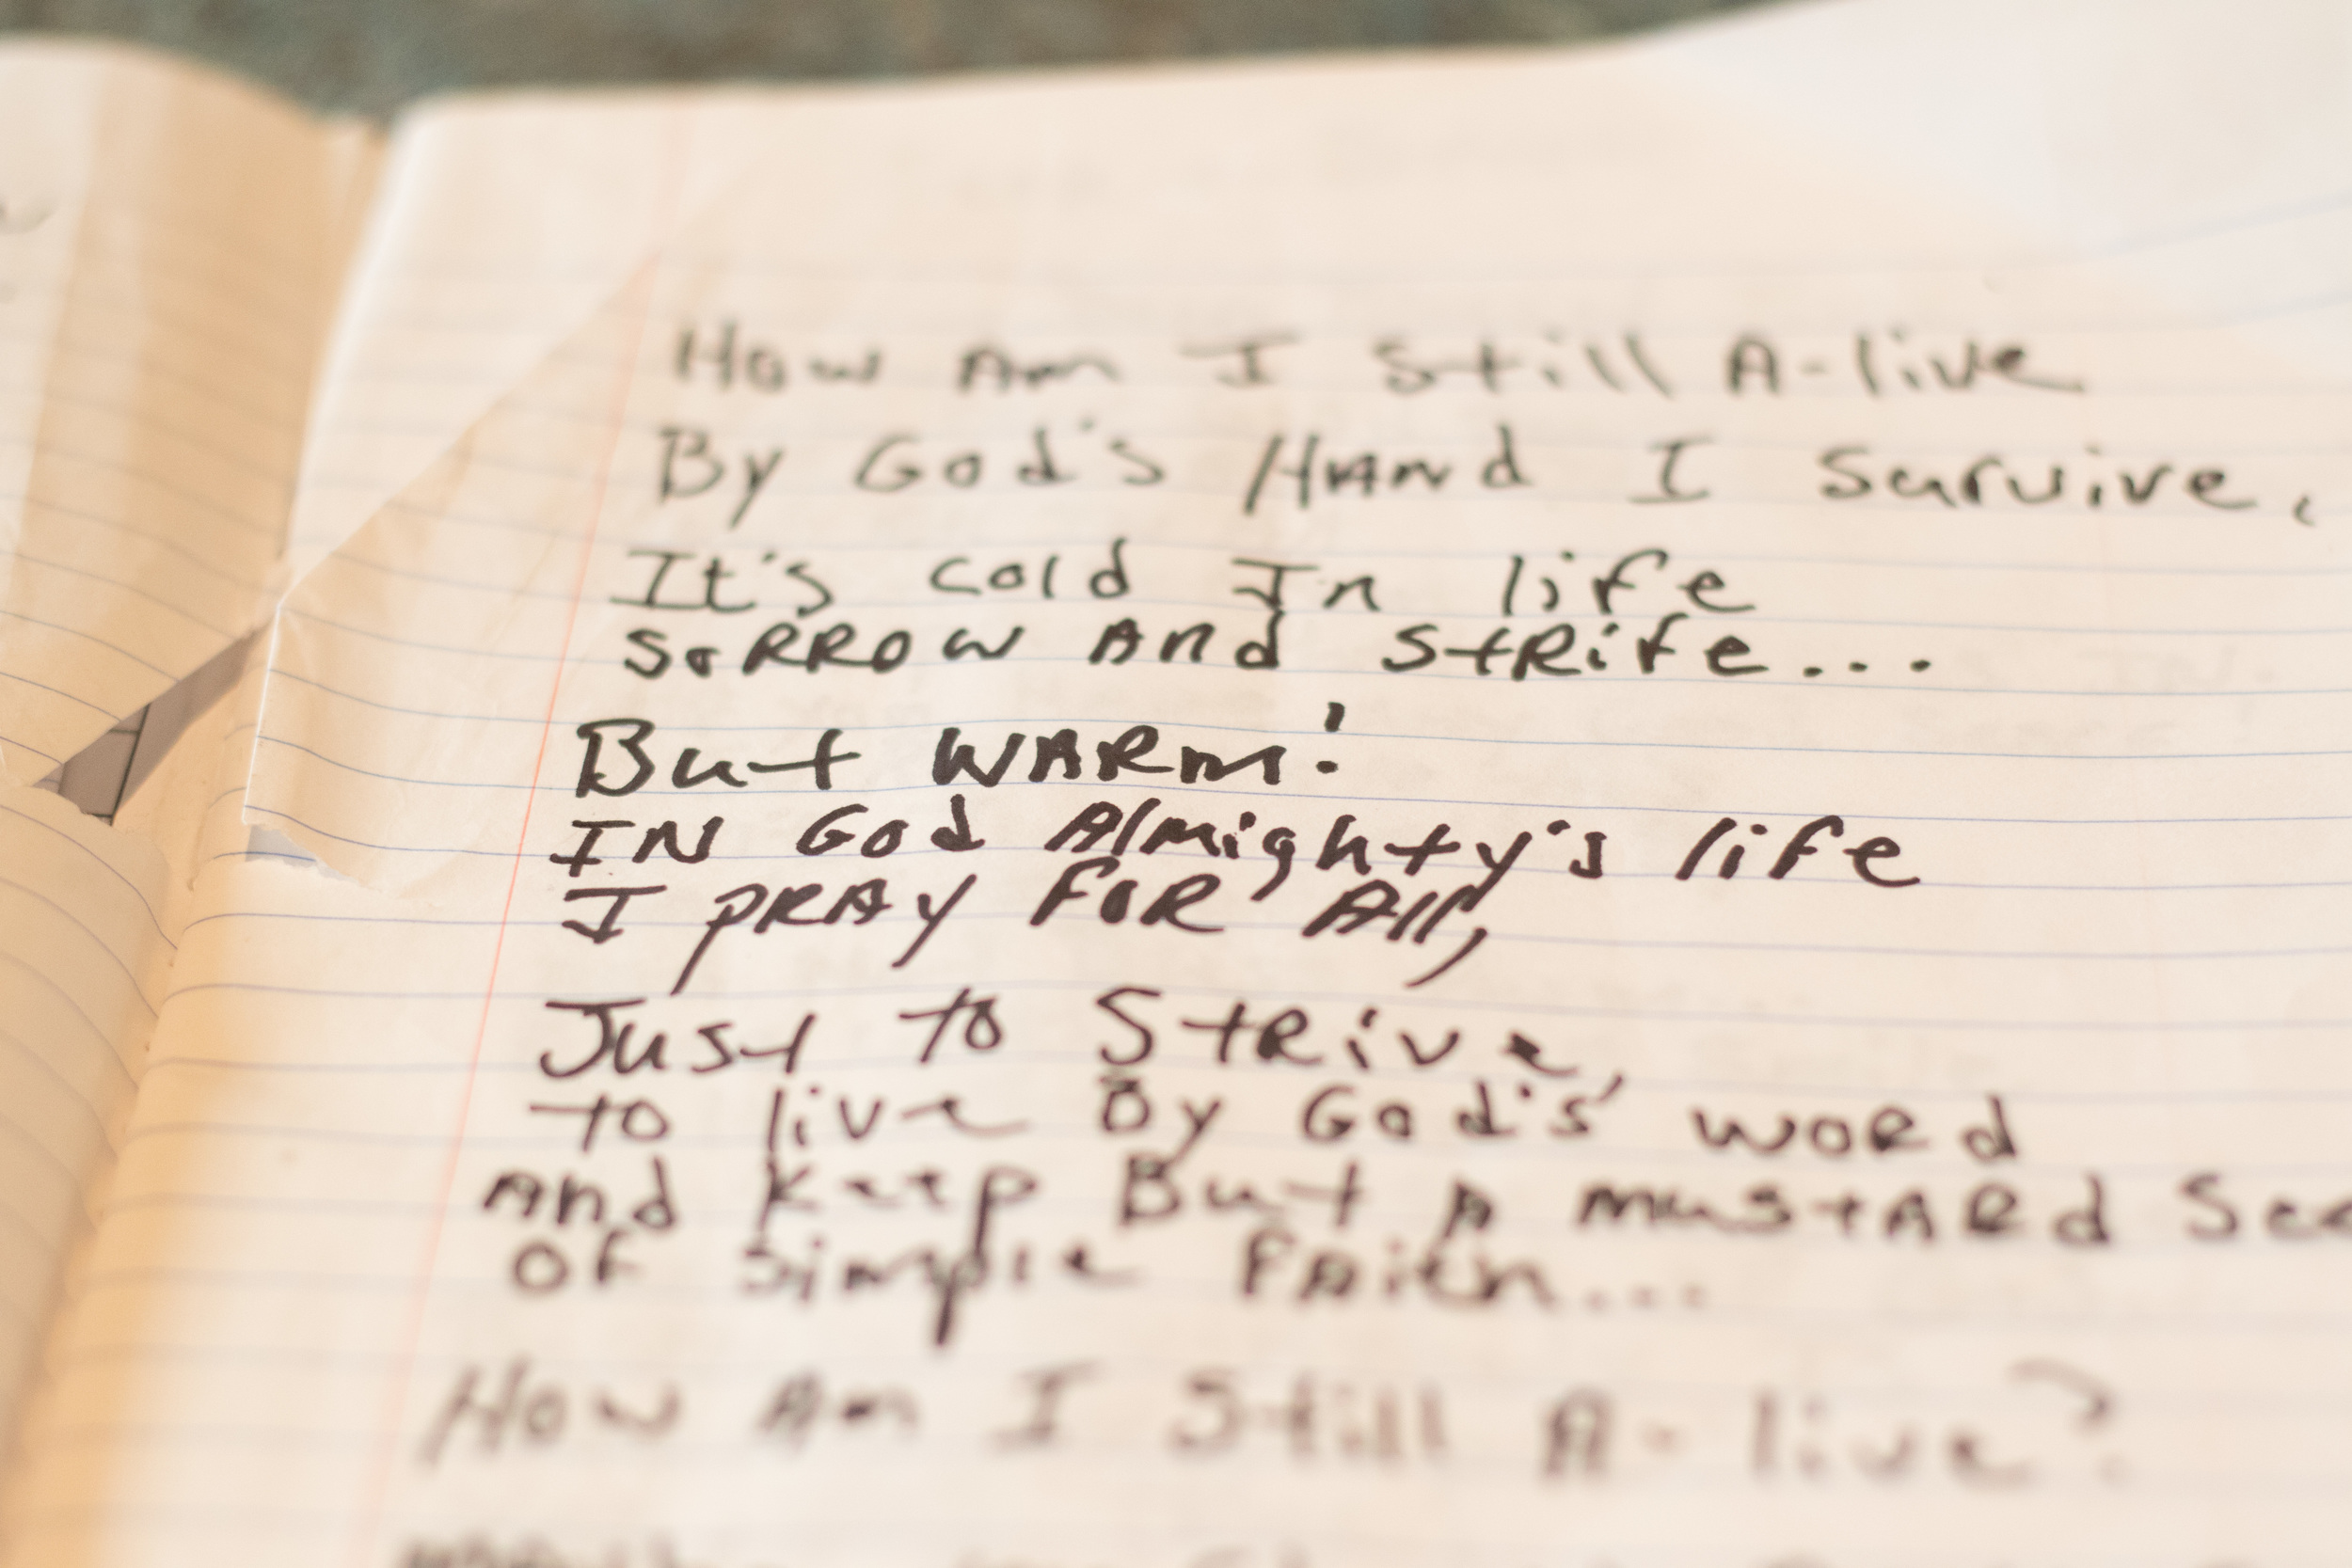 How Am I Still A-live
By God's HAnd I survive,
It's cold In life
SoRROW And StRife...
But WARm!
IN God Almighty's life
I pRAy FOR All,
Just to StRive,
to live By God's woRd
And keep But A mustARd See
of simple FAith...
How Am I Still A-live?